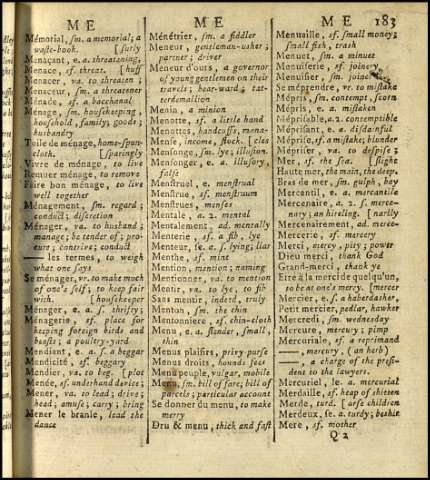 M E
M E
M E 183
Mémorial, sm. a memorial; a
waste-book. [surly
Menaçant, e. a. threatening,
Menace, sf. threat. [huff
Menacer, va. to threaten;
Menaceur, sm. a threatener
Ménade, sf. a bacchanal
Menage, sm. housekeeping;
household; family; goods;
husbandry
Toile de ménage, home-spun-
cloth. [sparingly
Vivre de ménage, to live
Remuer ménage, to remove
Faire bon ménage, to live
well together
Ménagement, sm. regard;
conduct; discretion
Ménager, va. to husband;
manage; be tender of; pro-
cure; contrive; conduct
—— les termes, to weigh
what one says
Se ménager, vr. to make much
of one's self; to keep fair
with. [housekeeper
Ménager, e. a. s. thrifty;
Ménagerie, sf. place for
keeping foreign birds and
beasts; a poultry-yard
Mendiant, e. a. s. a beggar
Mendicité, sf. beggary
Mendier, va. to beg. [plot
Menée, sf. underhand device;
Mener, va. to lead; drive;
head; amuse; carry; bring
Mener le branle, lead the
dance
Ménétrier, sm. a fiddler
Meneur, gentleman-usher;
partner; driver
Meneur d'ours, a governor
of young gentlemen on their
travels; bear-ward; tat-
terdemallion
Menin, a minion
Menotte, sf. a little hand
Menottes, handcuffs, mana-
Mense, income, stock. [cles
Mensonge, sm. lye; illusion.
Mensonger, e. a. illusory,
false
Menstruel, e. menstrual
Menstrue, sf. menstruum
Menstrues, menses
Mentale, a. 2. mental
Mentalement, ad. mentally
Menterie, sf. a fib, lye
Menteur, se. a. f. lying; liar
Menthe, sf. mint
Mention, mention; naming
Mentionner, va. to mention
Mentir, va. to lye, to fib
Sans mentir, indeed, truly
Menton, sm. the chin
Mentonniere, sf. chin-cloth
Menu, e. a. slender, small,
thin
Menus plaisirs, privy purse
Menus droits, hounds fees
Menu peuple, vulgar, mobile
Menu, sm. bill of fare; bill of
parcels; particular account
Se donner du menu, to make
merry
Dru & menu, thick and fast
Menuaille, sf. small money;
small fish, trash
Menuet, sm. a minuet
Menuiserie, sf. joinery
Menuisier, sm. joiner
Se méprendre, vr. to mistake
Mépris, sm. contempt, scorn
Mépris, e. a. mistaken
Méprisable, a. 2. contemptible
Méprisant, e. a. disdainful
Méprise, sf. a mistake; blunder
Mépriser, va. to despise;
Mer, sf. the sea. [slight
Haute mer, the main, the deep.
Bras de mer, sm. gulph, bay
Mercantil, e. a. mercantile
Mercenaire, a. 2. s. merce-
nary; an hireling. [narily
Mercenairement, ad. merce-
Mercerie, sf. mercery
Merci, mercy, pity; power
Dieu merci, thank God
Grand-merci, thank ye
Etre à la merci de quelqu'un,
to be at one's mercy. [mercer
Mercier, e. s. a haberdasher,
Petit mercier, pedlar, hawker
Mercredi, sm. wednesday
Mercure, mercury; pimp
Mercuriale, sf. a reprimand
——, mercury, (an herb)
——, a charge of the presi-
dent to the lawyers.
Mercuriel, le. a. mercurial
Merdaille, sf. heap of shiteen
Merde, turd. [arse children
Merdeux, se. a. turdy;
Mere, sf. mother
Q 2